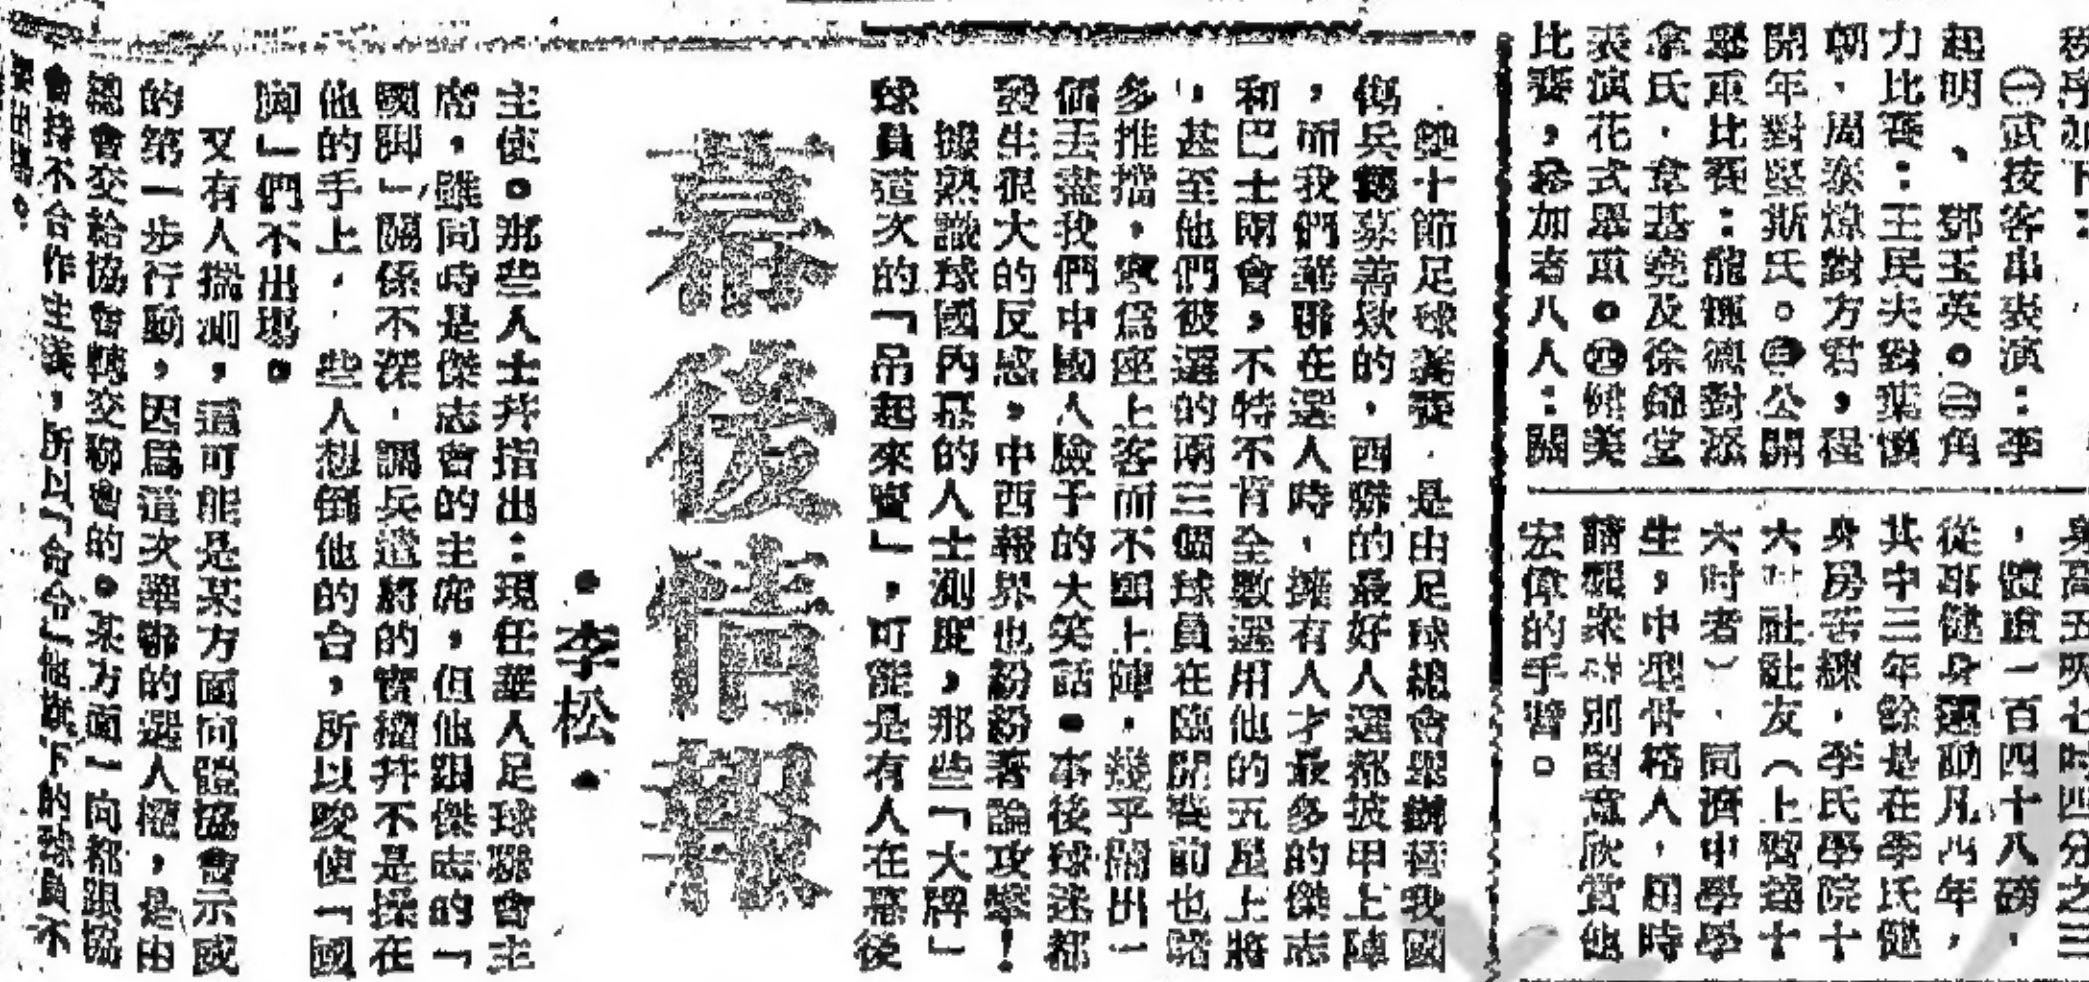 秩序如下：
㊀武技客串表演：李
起明、鄧玉英。㊁角
力比賽：王民夫對葉
朝，周泰燎對方君，程
開年對堅斯氏。㊂公開
舉重比賽：龍 德對
拿氏，韋基堯及徐錦堂
表演花式舉重。㊃健美
比賽，參加者八人：關
身高五呎七吋四分之三
，體重一百四十八磅，
從事健身運動凡四年，
其中三年餘是在李氏健
身房苦練，李氏學院十
大 社社友（上臂 十
六吋者），同濟中學學
生，中型骨格人，屆時
請觀衆特別留意欣賞他
宏偉的手臂。
雙十節足球義賽，是由足球總會舉辦 我國
傷兵 募善欵的，西聯的最好人選都披甲上陣
，而我們華聯在選人時，擁有人才最多的傑志
和巴士兩會，不特不肯全數選用他的五星上將
，甚至他們被選的兩三個球員在臨開賽前也
多推擋，寧爲座上客而不願上陣，幾乎鬧出一
個丟盡我們中國人臉子的大笑話。事後球迷都
發生很大的反感，中西報界也紛紛著論攻擊！
據熟識球國內幕的人士測度，那些「大牌」
球員這次的「吊起來賣」，可能是有人在幕後
幕後情報
·李松·
主使。那些人士幷指出：現任華人足球聯會主
席，雖同時是傑志會的主席，但他跟傑志的「
國脚」關係不深，調兵遣將的實權幷不是操在
他的手上， 些人想倒他的台，所以唆使「國
脚」們不出場。
又有人揣測，這可能是某方面向體協會示威
的第一步行動，因爲這次華聯的選人權，是由
總會交給協會轉交聯會的。某方面一向都跟協
會持不合作主義，所以「命令」他旗下的球員不
要出場。